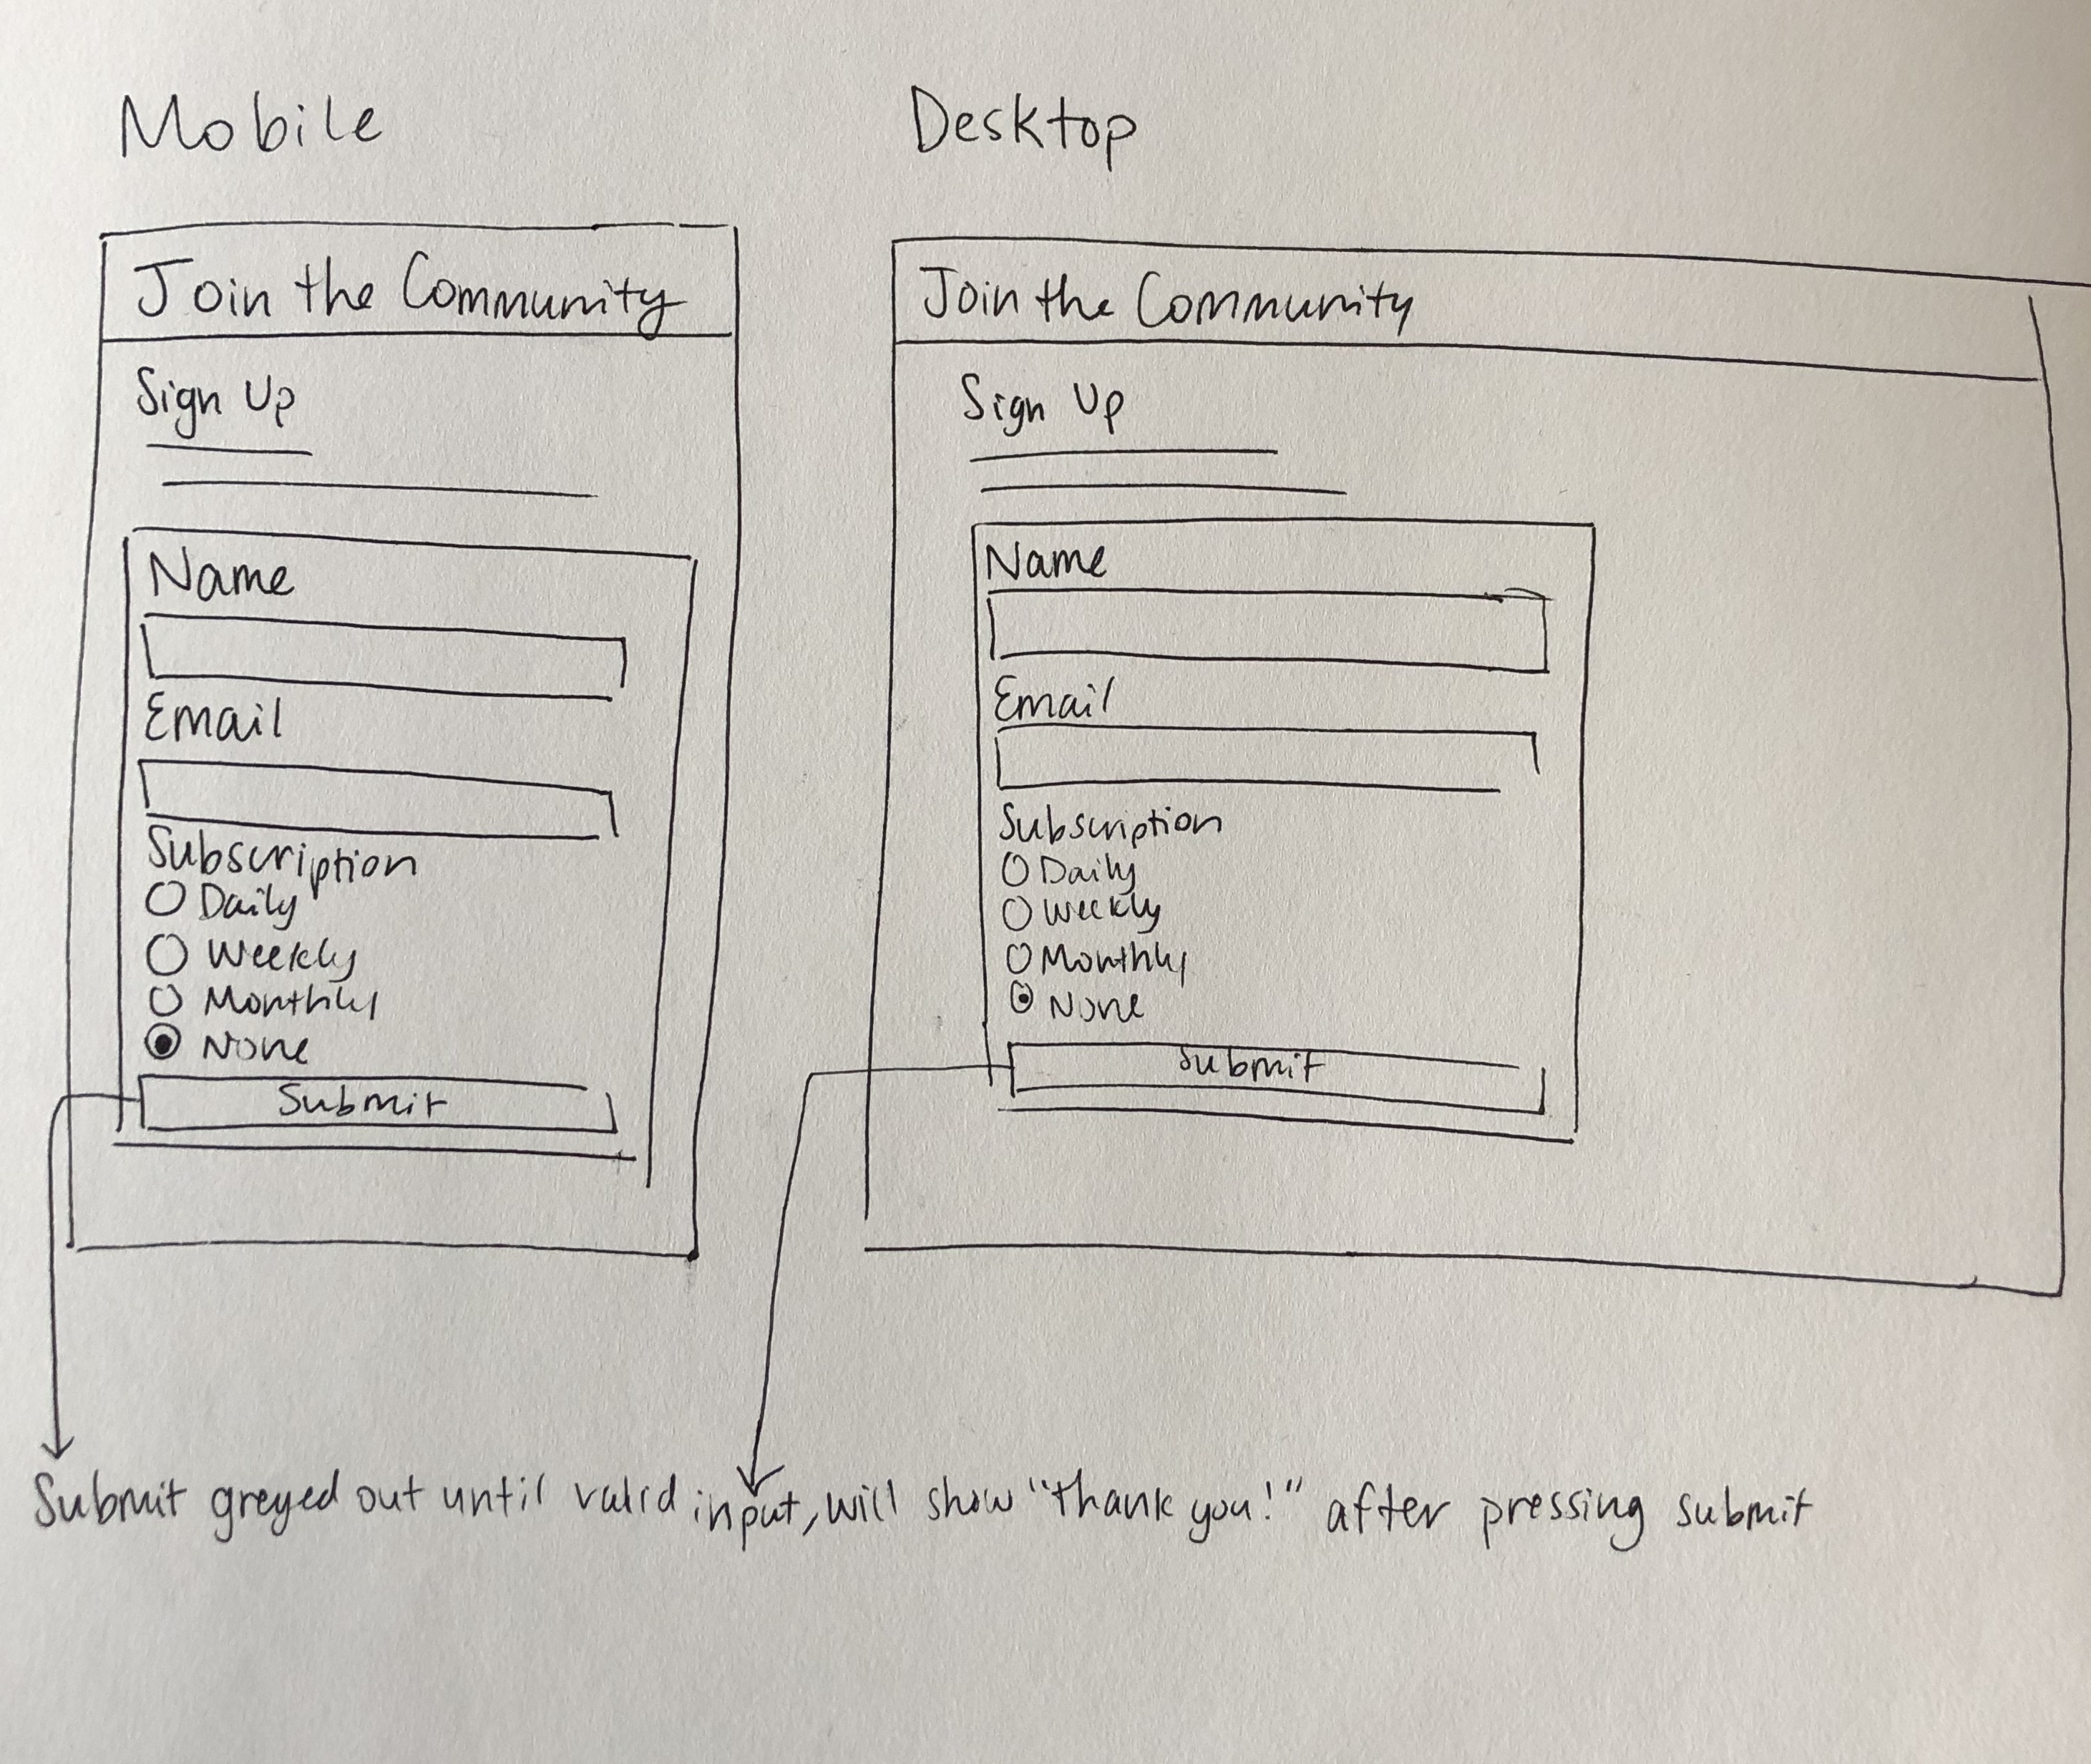 Mobile
Join the Community
Sign Up
Name
Email
Subscription
Daily
Weekly
Monthly
None
Submit
Desktop
Join the Community
Sign Up
Name
Email
Subscription
Daily
Weekly
Monthly
None
Submit
Submit greyed out until valid input, will show "thank you!" after pressing submit